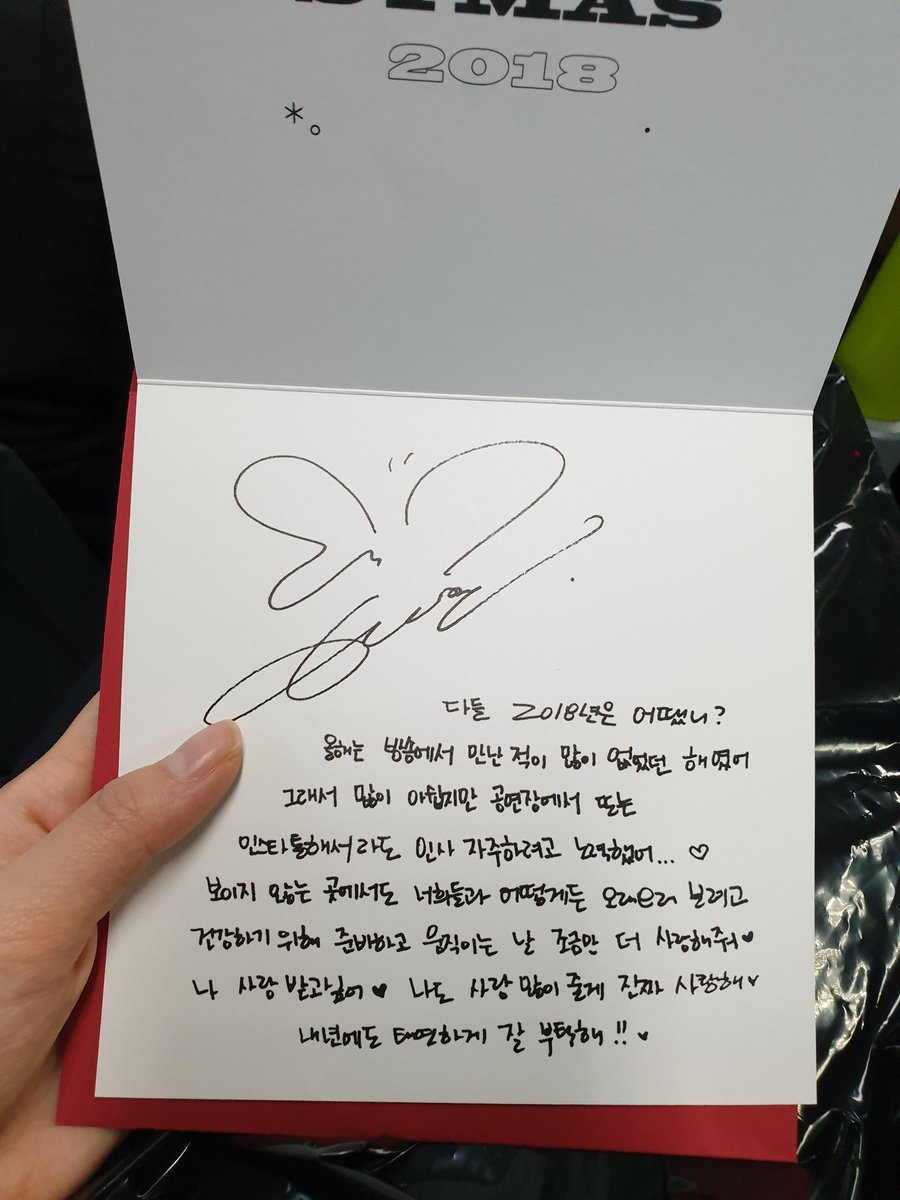 STMAS
2018
다들 2018년은 어땠니?
올해는 방송에서 만난 적이 많이 없었던 해였어
그래서 많이 아쉽지만 공연장에서 또는
인스타통해서라도 인사 자주하려고 노력했어... ♡
보이지 않는 곳에서도 너희들과 어떻게든 오래오래 보려고
건강하기 위해 준비하고 움직이는 날 조금만 더 사랑해줘♥
나 사랑 받고싶어♥ 나도 사랑 많이 줄게 진짜 사랑해♥
내년에도 태연하게 잘 부탁해!! ♥